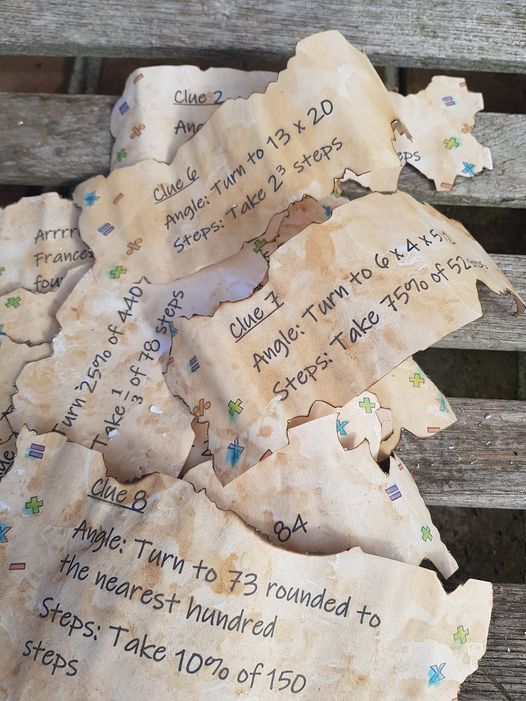 Clue 2
Clue 6
Angle: Turn to 13 x 20
Steps: Take 2³ steps
Clue 7
Angle: Turn to 6 x 4 x 5
Steps: Take 75% of 52
Turn 25% of 440
Take 1/3 of 78 steps
84
Clue 8
Angle: Turn to 73 rounded to
the nearest hundred
Steps: Take 10% of 150
steps